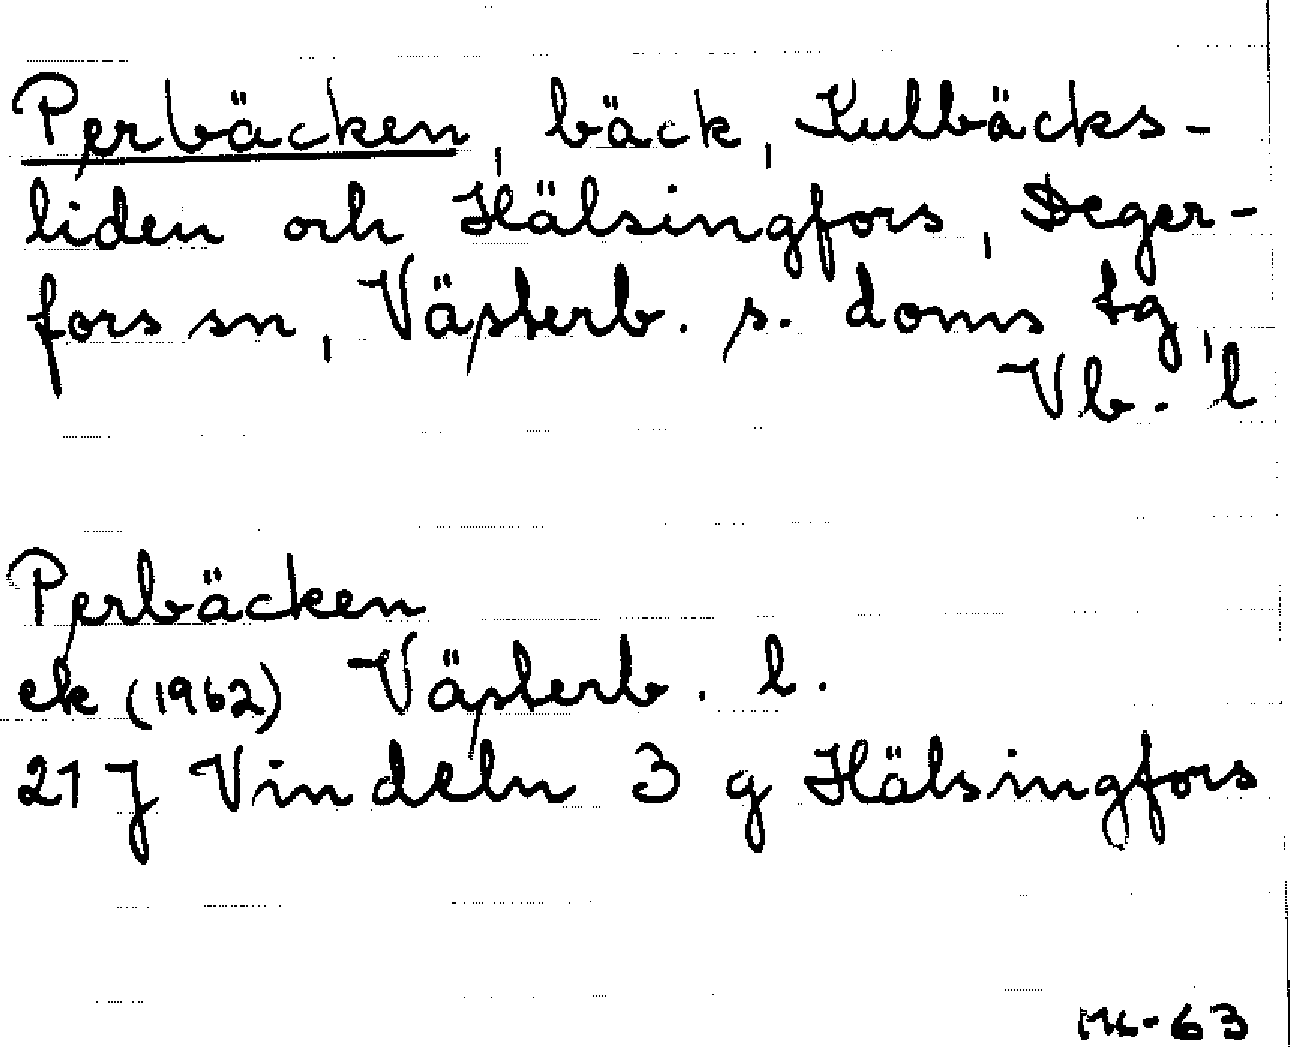 Perbäcken, bäck, Kulbäcks-
liden och Hälsingfors, Deger-
fors sn, Västerb. s. doms tg,
Vb. l
Perbäcken
ek (1962) Västerb. l.
21 J Vindeln 3 g Hälsingfors
-63